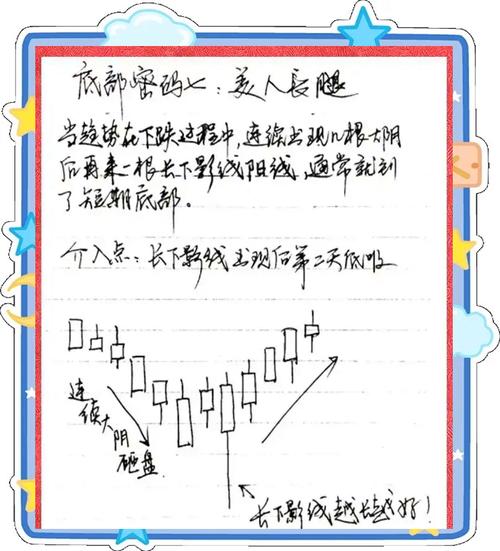 底部密码七：美人长腿
当趋势在下跌过程中，连续出现几根大阴
后再来一根长下影线阳线，通常就到
了短期底部。
介入点：长下影线出现后第二天低吸
连续大阴砸盘
长下影线越长越好！